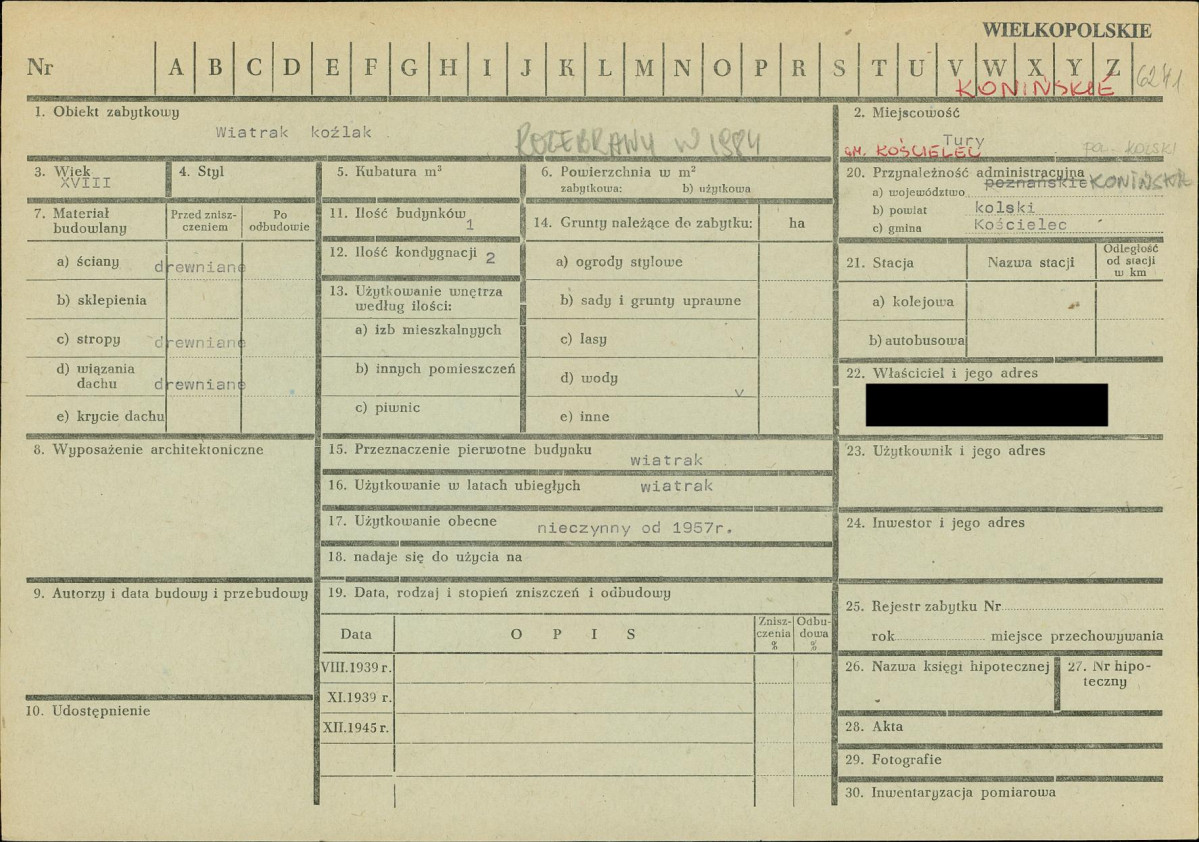 WIELKOPOLSKIE
Nr A B C D E F G H I J K L M N O P R S T U V W X Y Z 6271
KONIŃSKIE
1. Obiekt zabytkowy
Wiatrak koźlak
ROZEBRANY W 1984
2. Miejscowość
Tury
GM. KOŚCIELEC
pow. KOLSKI
3. Wiek
XVIII
4. Styl
5. Kubatura m³
6. Powierzchnia w m²
zabytkowa: b) użytkowa
20. Przynależność administracyjna
a) województwo poznańskie KONIŃSKIE
b) powiat kolski
c) gmina Kościelec
7. Materiał budowlany
Przed zniszczeniem
Po odbudowie
a) ściany drewniane
b) sklepienia
c) stropy drewniane
d) wiązania dachu drewniane
e) krycie dachu
11. Ilość budynków 1
12. Ilość kondygnacji 2
13. Użytkowanie wnętrza według ilości:
a) izb mieszkalnych
b) innych pomieszczeń
c) piwnic
14. Grunty należące do zabytku: ha
a) ogrody stylowe
b) sady i grunty uprawne
c) lasy
d) wody
v
e) inne
21. Stacja
Nazwa stacji
Odległość od stacji w km
a) kolejowa
b) autobusowa
22. Właściciel i jego adres
8. Wyposażenie architektoniczne
15. Przeznaczenie pierwotne budynku wiatrak
16. Użytkowanie w latach ubiegłych wiatrak
17. Użytkowanie obecne nieczynny od 1957r.
18. nadaje się do użycia na
23. Użytkownik i jego adres
24. Inwestor i jego adres
9. Autorzy i data budowy i przebudowy
19. Data, rodzaj i stopień zniszczeń i odbudowy
Data
OPIS
Zniszczenia %
Odbudowa %
VIII.1939 r.
XI.1939 r.
XII.1945 r.
10. Udostępnienie
25. Rejestr zabytku Nr
rok miejsce przechowywania
26. Nazwa księgi hipotecznej
27. Nr hipoteczny
28. Akta
29. Fotografie
30. Inwentaryzacja pomiarowa